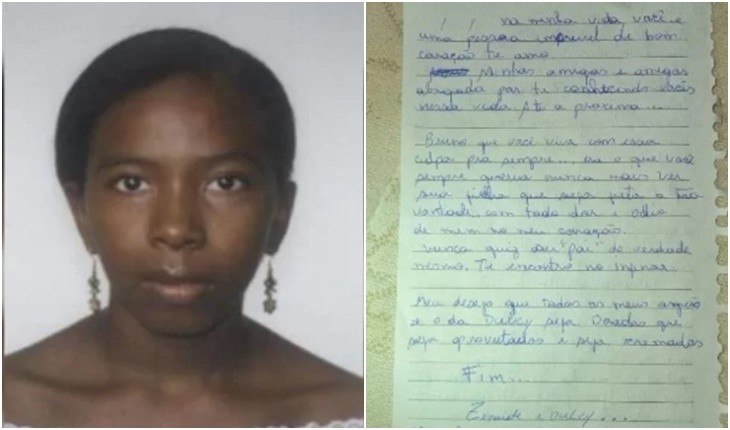 na minha vida, você é
uma pessoa incrivel de bom
coração te amo
Minhas amigas e amigos
obrigada por te conhecido vocês
nessa vida Até a proxima....
Bruno que você viva com essa
culpa pra sempre... era o que você
sempre queria nunca mais ver
sua filha que seja feita a sua
vontade, com toda dor e odio
de mim no meu coração.
nunca quiz ser "pai" de verdade
mesmo. Te encontro no inferno.
Meu desejo que todos os meus orgãos
e o da Dulcy seja Doados que
seja aproveitados e seja cremados
Fim...
Dulcy...